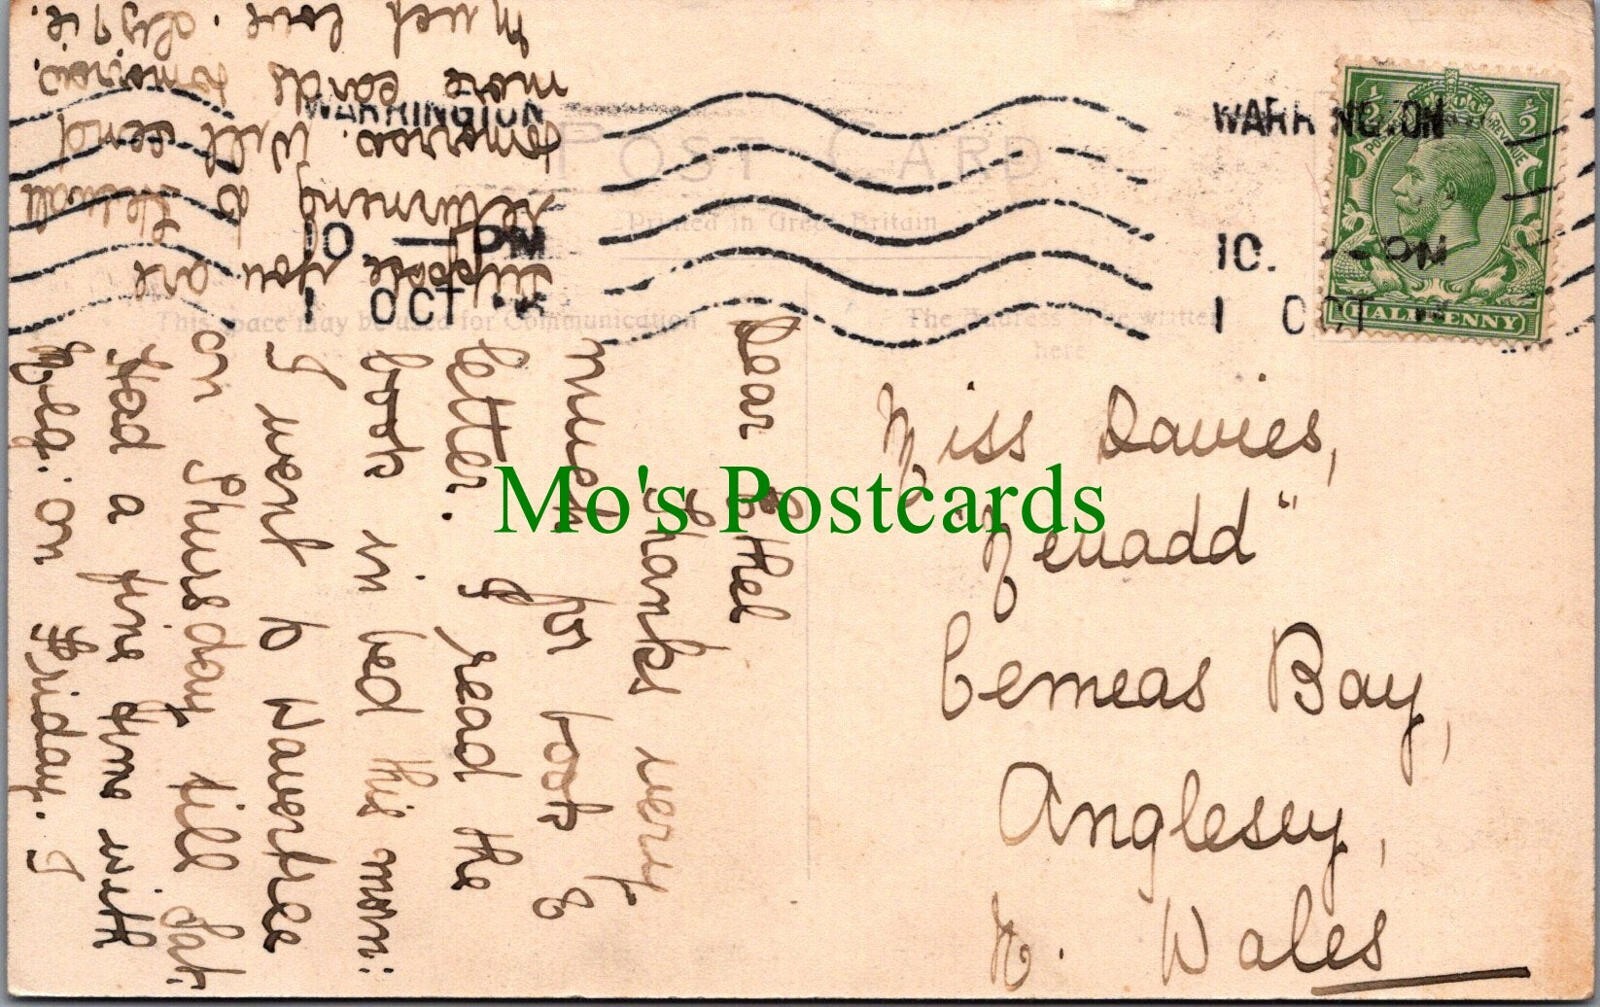 POST CARD
Printed in Great Britain
This space may be used for Communication
The Address to be written
here
WARRINGTON
10 — PM
1 OCT
WARRINGTON
10. — PM
1 OCT
POSTAGE REVENUE
1/2 1/2
HALFPENNY
Miss Davies,
"Neuadd"
Cemeas Bay,
Anglesey,
N. Wales
Dear Ethel
Thanks very
much for book &
letter. I read the
book in bed this morn:
I went to Wavertree
on Thursday till Sat.
Had a fine time with
on Friday. I
suppose you are
returning to Helwall
tomorrow. Will send
more cards tomorrow.
Much love.
Mo's Postcards